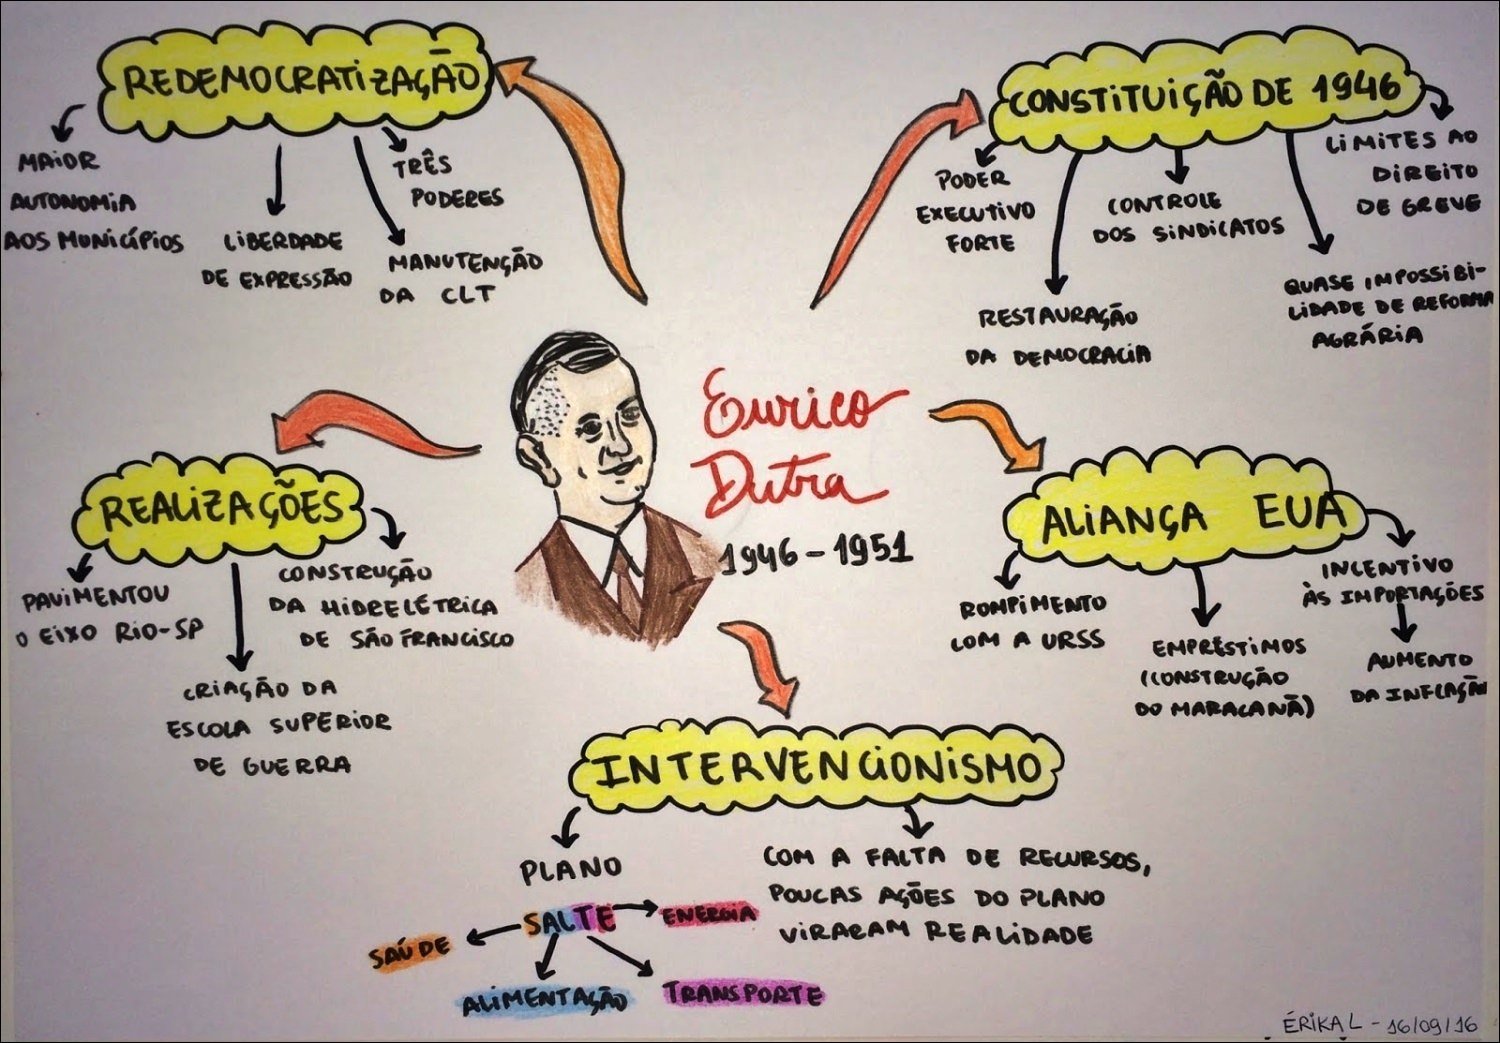 REDEMOCRATIZAÇÃO
MAIOR
AUTONOMIA
AOS MUNICÍPIOS
LIBERDADE
DE EXPRESSÃO
TRÊS
PODERES
MANUTENÇÃO
DA CLT
CONSTITUIÇÃO DE 1946
PODER
EXECUTIVO
FORTE
RESTAURAÇÃO
DA DEMOCRACIA
CONTROLE
DOS SINDICATOS
LIMITES AO
DIREITO
DE GREVE
QUASE IMPOSSIBI-
LIDADE DE REFORMA
AGRÁRIA
Eurico
Dutra
1946 - 1951
REALIZAÇÕES
PAVIMENTOU
O EIXO RIO-SP
CRIAÇÃO DA
ESCOLA SUPERIOR
DE GUERRA
CONSTRUÇÃO
DA HIDRELÉTRICA
DE SÃO FRANCISCO
ALIANÇA EUA
ROMPIMENTO
COM A URSS
EMPRÉSTIMOS
(CONSTRUÇÃO
DO MARACANÃ)
INCENTIVO
ÀS IMPORTAÇÕES
AUMENTO
DA INFLAÇÃO
INTERVENCIONISMO
PLANO
SALTE
SAÚDE
ALIMENTAÇÃO
TRANSPORTE
ENERGIA
COM A FALTA DE RECURSOS,
POUCAS AÇÕES DO PLANO
VIRARAM REALIDADE
ÉRIKA L - 16/09/16